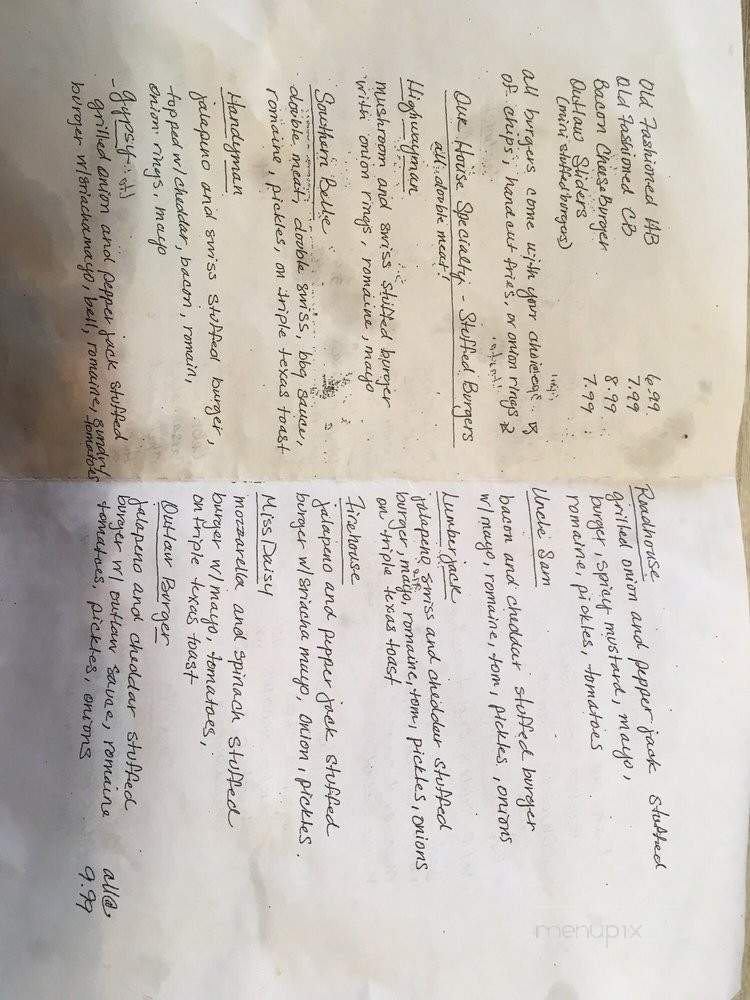 Old Fashioned HB 6.99
Old Fashioned CB 7.99
Bacon Cheese Burger 8.99
Outlaw Sliders 7.99
(mini stuffed burgers)
all burgers come with your choice
of chips, handcut fries, or onion rings
Our House Specialty - Stuffed Burgers
all double meat!
Highwayman
mushroom and swiss stuffed burger
with onion rings, romaine, mayo
Southern Belle
double meat, double swiss, bbq sauce,
romaine, pickles, on triple texas toast
Handyman
jalapeno and swiss stuffed burger,
topped w/cheddar, bacon, romain,
onion rings, mayo
- Gypsy
grilled onion and pepper jack stuffed
burger w/sriacha mayo, bell, romaine, sundry
tomatoes
Roadhouse
grilled onion and pepper jack stuffed
burger, spicy mustard, mayo,
romaine, pickles, tomatoes
Uncle Sam
bacon and cheddar stuffed burger
w/mayo, romaine, tom, pickles, onions
Lumberjack
jalapeno, swiss and cheddar stuffed
burger, mayo, romaine, tom, pickles, onions
on triple texas toast
Firehouse
jalapeno and pepper jack stuffed
burger w/sriacha mayo, onion, pickles.
Miss Daisy
mozzarella and spinach stuffed
burger w/mayo, tomatoes,
on triple texas toast
Outlaw Burger
jalapeno and cheddar stuffed
burger w/ outlaw sauce, romaine
tomatoes, pickles, onions
all@
9.99
menupix